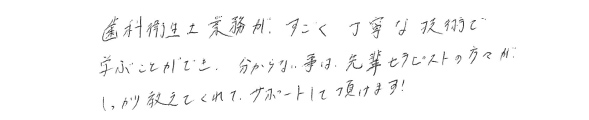 歯科衛生士業務が、すごく丁寧な技術で
学ぶことができ、分からない事は、先輩セラピストの方々が、
しっかり教えてくれて、サポートして頂けます!